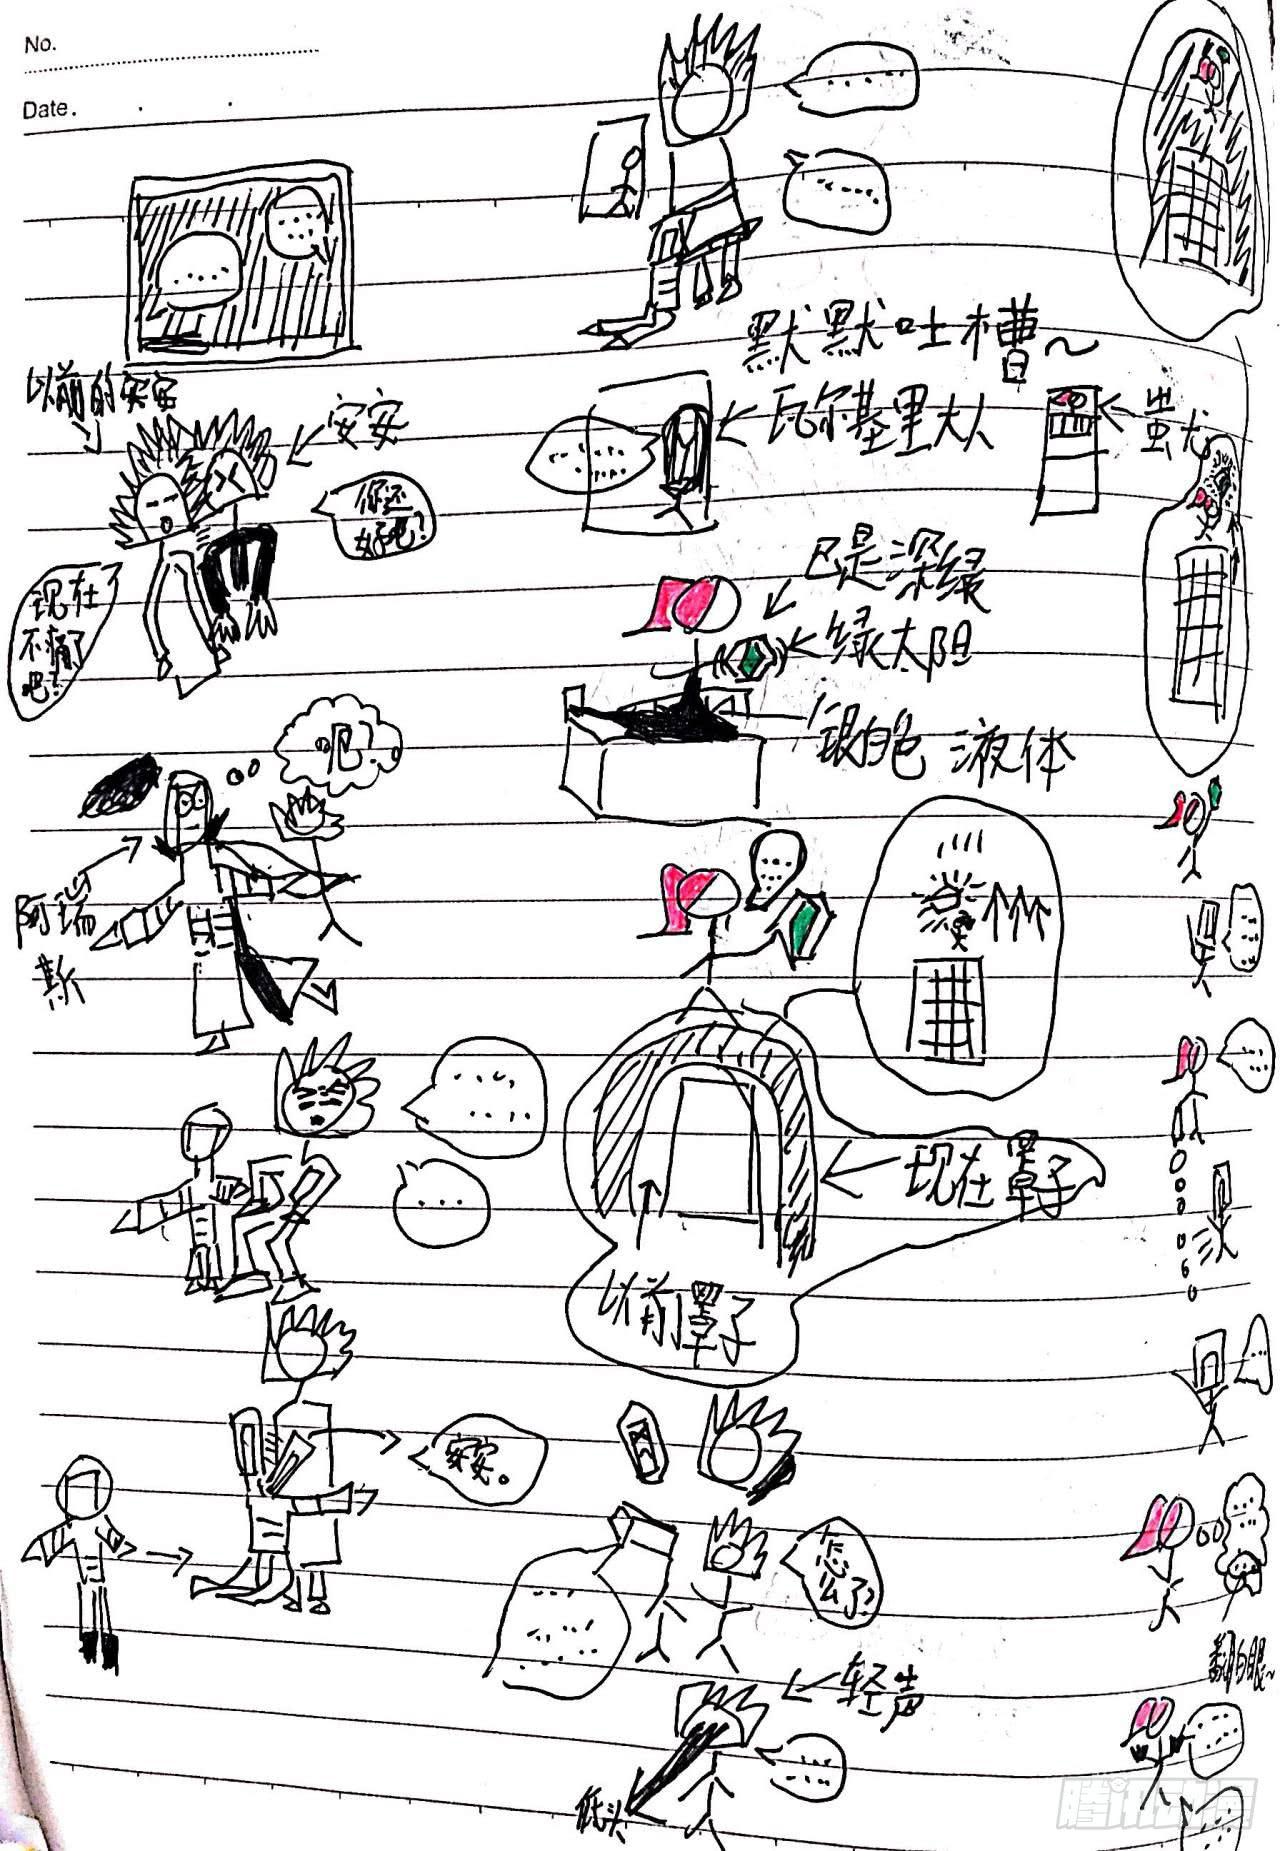 No.
Date.
以前的安安
安安
你还
好吧?
现在
不痛了
吧?
吧?
阿瑞
斯
安安。
默默吐槽~
瓦尔基里大人
蚩尤
已是深绿
绿太阳
银白色 液体
现在罩子
以前罩子
怎
么了?
轻声
低头
翻白眼~
腾讯动漫